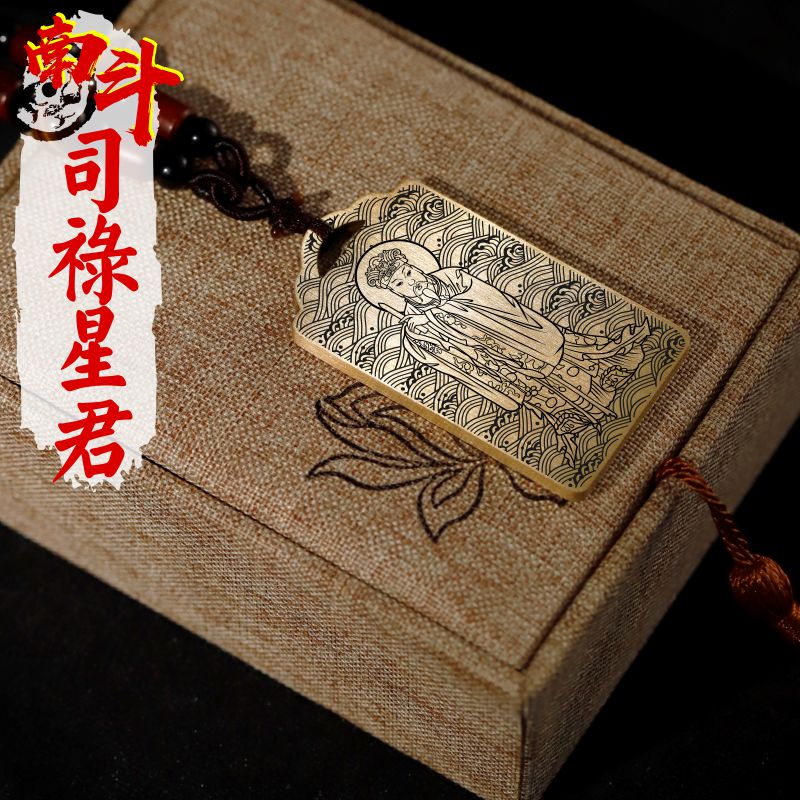 南斗
司祿星君